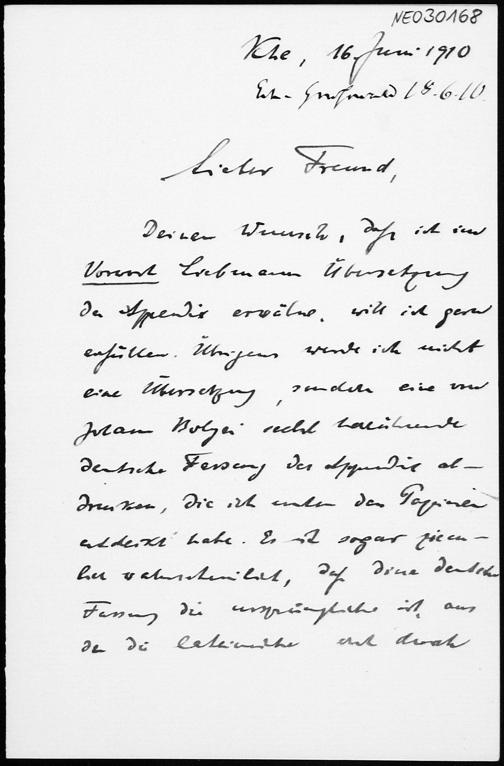 NEO30168
Khe, 16. Juni 1910
Erh. Greifswald 18.6.10.
Lieber Freund,
Deinen Wunsch, daß ich im
Vorwort Liebmanns Übersetzung
des Appendix erwähne, will ich gern
erfüllen. Übrigens werde ich nicht
eine Übersetzung, sondern eine von
Johann Bolyai selbst herrührende
deutsche Fassung des Appendix ab-
drucken, die ich unter den Papieren
entdeckt habe. Es ist sogar ziem-
lich wahrscheinlich, daß diese deutsche
Fassung die ursprüngliche ist, aus
der die lateinische erst durch